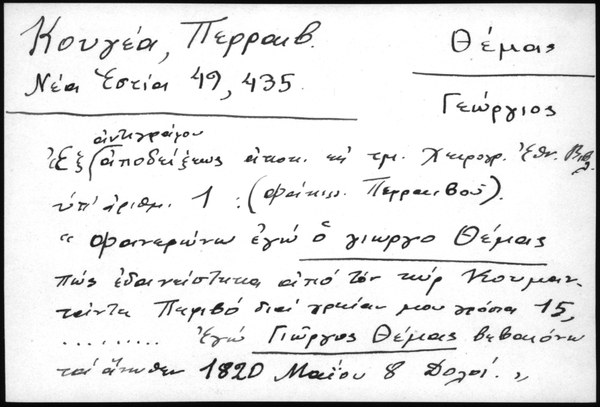 Κουγέα, Περραιβ.
Νέα Ἑστία 49, 435.
Θέμας
Γεώργιος
ἀντιγράφου
Ἐξ ἀποδείξεως ἀποκ. τμ. Χειρογρ. Ἐθν. Βιβλ.
ὑπ' ἀριθμ. 1 : (φάκελ. Περραιβοῦ).
" Φανερώνω ἐγώ ὁ γιωργο Θέμας
πώς ἐδανείστηκα ἀπό τόν κύρ Κουμαν-
τάντε Περιβό διά χρείαν μου γρόσα 15,
......... Ἐγώ Γιῶργος Θέμας βεβαιόνω
τά ἄνωθεν 1820 Μαΐου 8 Δολοί. "